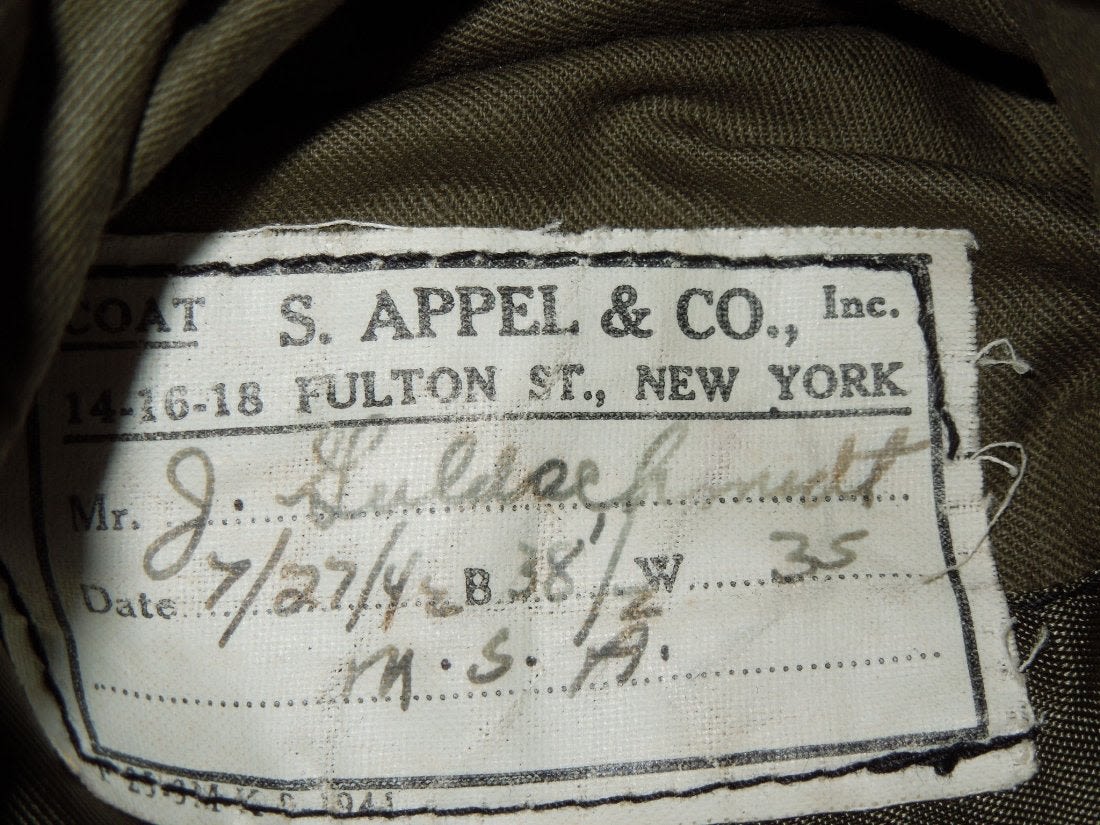 COAT S. APPEL & CO., Inc.
14-16-18 FULTON ST., NEW YORK
Mr. J. Guldschmidt
Date 7/27/42 B 38 1/2 W 35
M.S.A.
1941